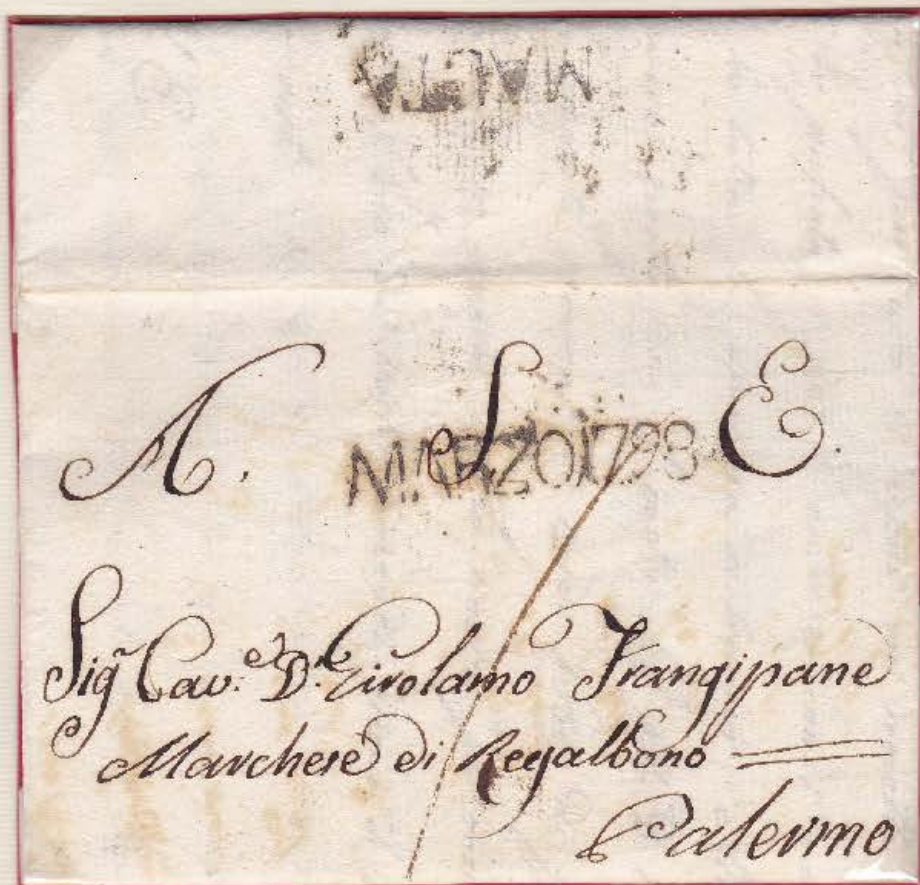 MALTA
A. S. E.
MARZO 1798
Sig.r Cav.e D.n Girolamo Frangipane
Marchese di Regalbono
Palermo